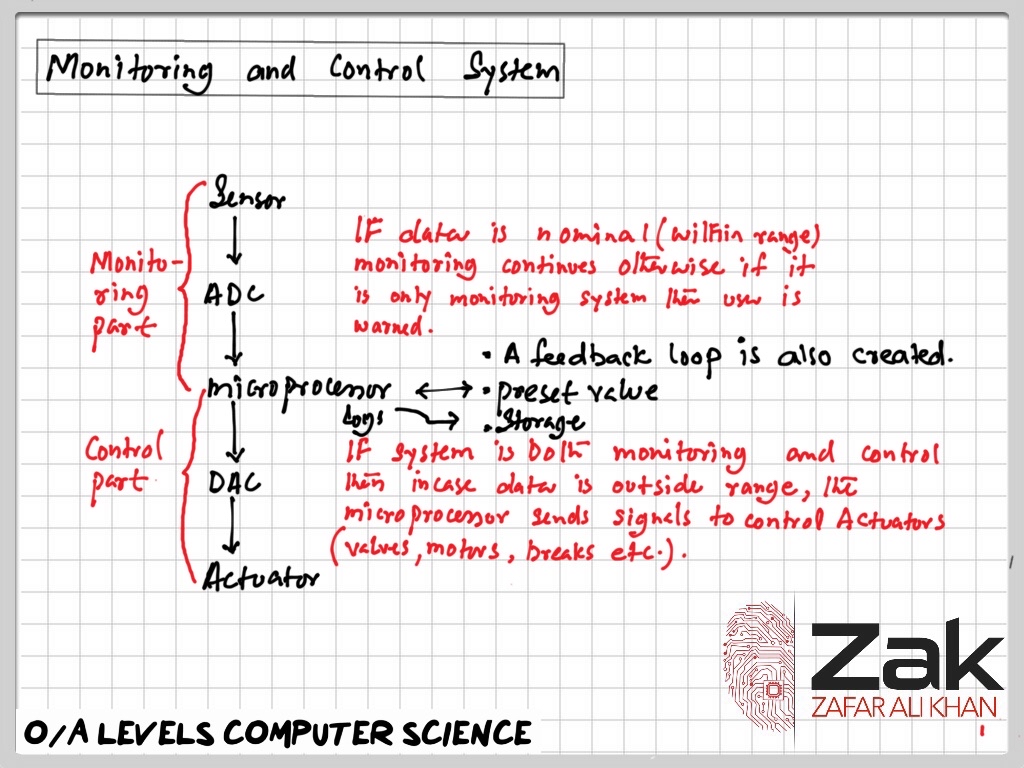 Monitoring and Control System
Sensor
ADC
microprocessor
DAC
Actuator
Monito-
ring
part
Control
part
IF data is nominal (within range)
monitoring continues otherwise if it
is only monitoring system then user is
warned.
• A feedback loop is also created.
• preset value
Logs
• Storage
IF system is both monitoring and control
then incase data is outside range, the
microprocessor sends signals to control Actuators
(valves, motors, breaks etc.).
Zak
ZAFAR ALI KHAN
1
O/A LEVELS COMPUTER SCIENCE